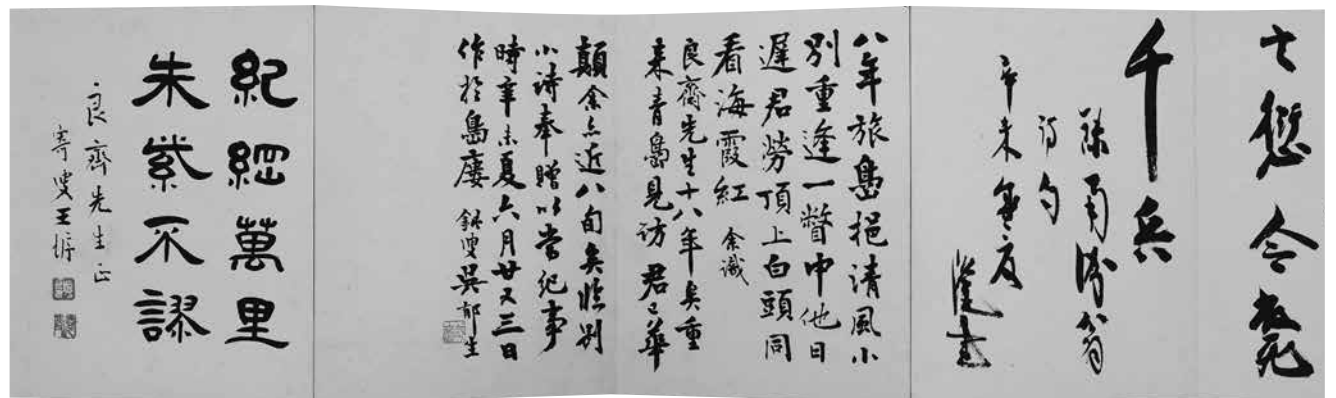 千兵
詩句
辛未
八年旅島挹清風小
別重逢一瞥中他日
遲君勞頂上白頭同
看海霞紅 余識
良齋先生十八年矣重
來青島見訪君已華
顛余亦近八旬矣臨別
小詩奉贈以當紀事
時辛未夏六月廿又三日
作於島廔 鈍叟吳郁生
紀綱萬里
朱紫不謬
良齋先生正
寄叟王垿